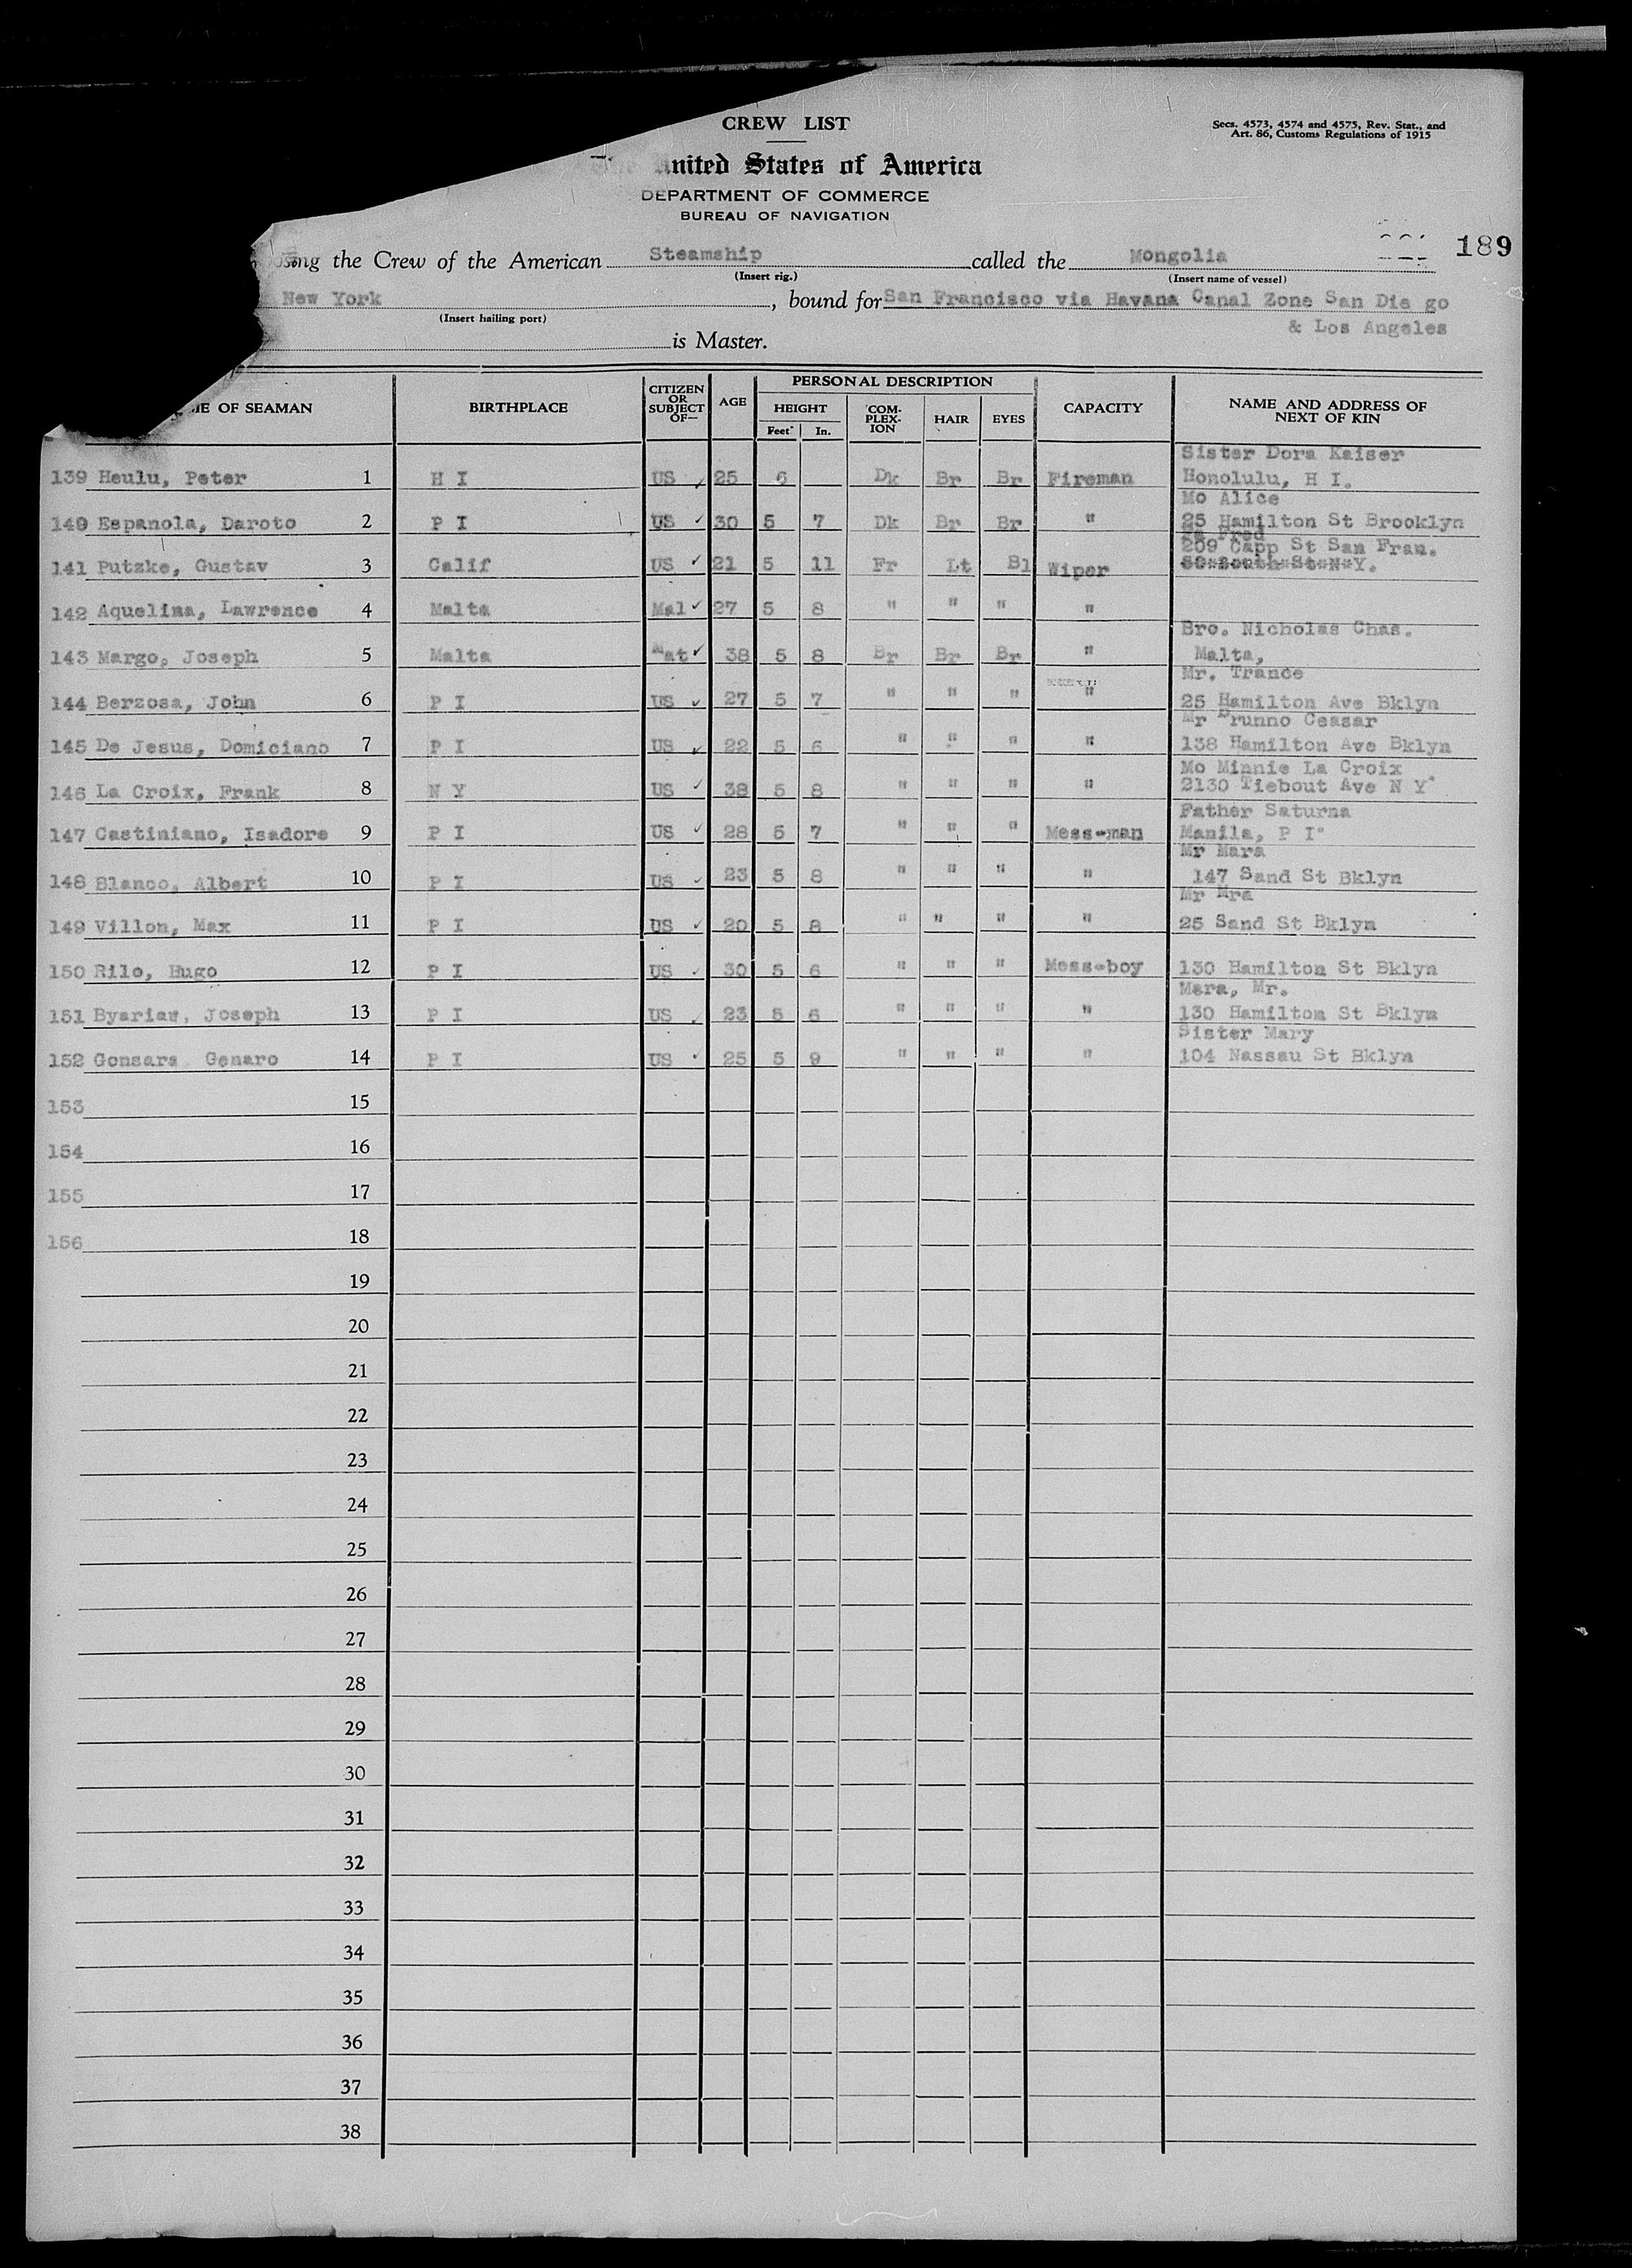 CREW LIST
Secs. 4573, 4574 and 4575, Rev. Stat., and
Art. 86, Customs Regulations of 1915
United States of America
DEPARTMENT OF COMMERCE
BUREAU OF NAVIGATION
189
the Crew of the American Steamship called the Mongolia
(Insert rig.) (Insert name of vessel)
New York, bound for San Francisco via Havana Canal Zone San Die go
(Insert hailing port) & Los Angeles
is Master.
OF SEAMAN BIRTHPLACE CITIZEN OR SUBJECT OF— AGE PERSONAL DESCRIPTION CAPACITY NAME AND ADDRESS OF NEXT OF KIN
HEIGHT COM-PLEX-ION HAIR EYES
Feet In.
Sister Dora Kaiser
139 Heulu, Peter 1 H I US ✓ 25 6 Dk Br Br Fireman Honolulu, H I.
Mo Alice
140 Espanola, Daroto 2 P I US ✓ 30 5 7 Dk Br Br " 25 Hamilton St Brooklyn
Fred
209 Capp St San Fran.
141 Putzke, Gustav 3 Calif US ✓ 21 5 11 Fr Lt Bl Wiper
142 Aquelina, Lawrence 4 Malta Mal ✓ 27 5 8 " " " "
Bro. Nicholas Chas.
143 Margo, Joseph 5 Malta Mat ✓ 38 5 8 Br Br Br " Malta,
Mr. Trance
144 Berzosa, John 6 P I US ✓ 27 5 7 " " " " 25 Hamilton Ave Bklyn
Mr Brunno Ceasar
145 De Jesus, Domiciano 7 P I US ✓ 22 5 6 " " " " 138 Hamilton Ave Bklyn
Mo Minnie La Croix
146 La Croix, Frank 8 N Y US ✓ 38 5 8 " " " " 2130 Tiebout Ave N Y
Father Saturna
147 Castiniano, Isadore 9 P I US ✓ 28 5 7 " " " Mess-man Manila, P I
Mr Mara
148 Blanco, Albert 10 P I US ✓ 23 5 8 " " " " 147 Sand St Bklyn
Mr Mra
149 Villon, Max 11 P I US ✓ 20 5 8 " " " " 25 Sand St Bklyn
150 Rilo, Hugo 12 P I US ✓ 30 5 6 " " " Mess-boy 130 Hamilton St Bklyn
Mara, Mr.
151 Byariaw, Joseph 13 P I US ✓ 23 5 6 " " " " 130 Hamilton St Bklyn
Sister Mary
152 Gonsara, Genaro 14 P I US ✓ 25 5 9 " " " " 104 Nassau St Bklyn
153 15
154 16
155 17
156 18
19
20
21
22
23
24
25
26
27
28
29
30
31
32
33
34
35
36
37
38